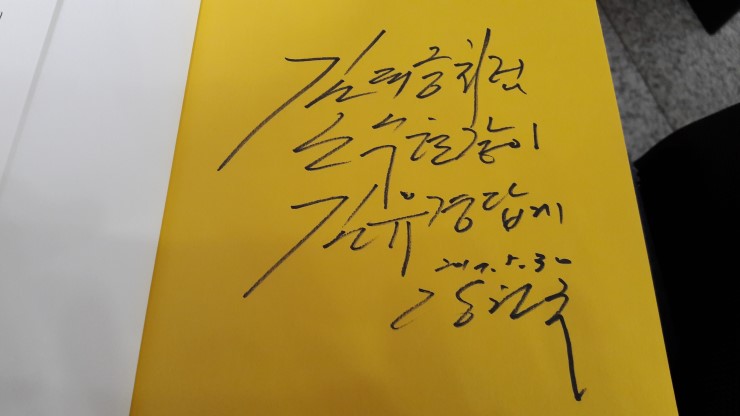 김대중처럼
노무현같이
김유경답게
2017. 5. 30
강원국